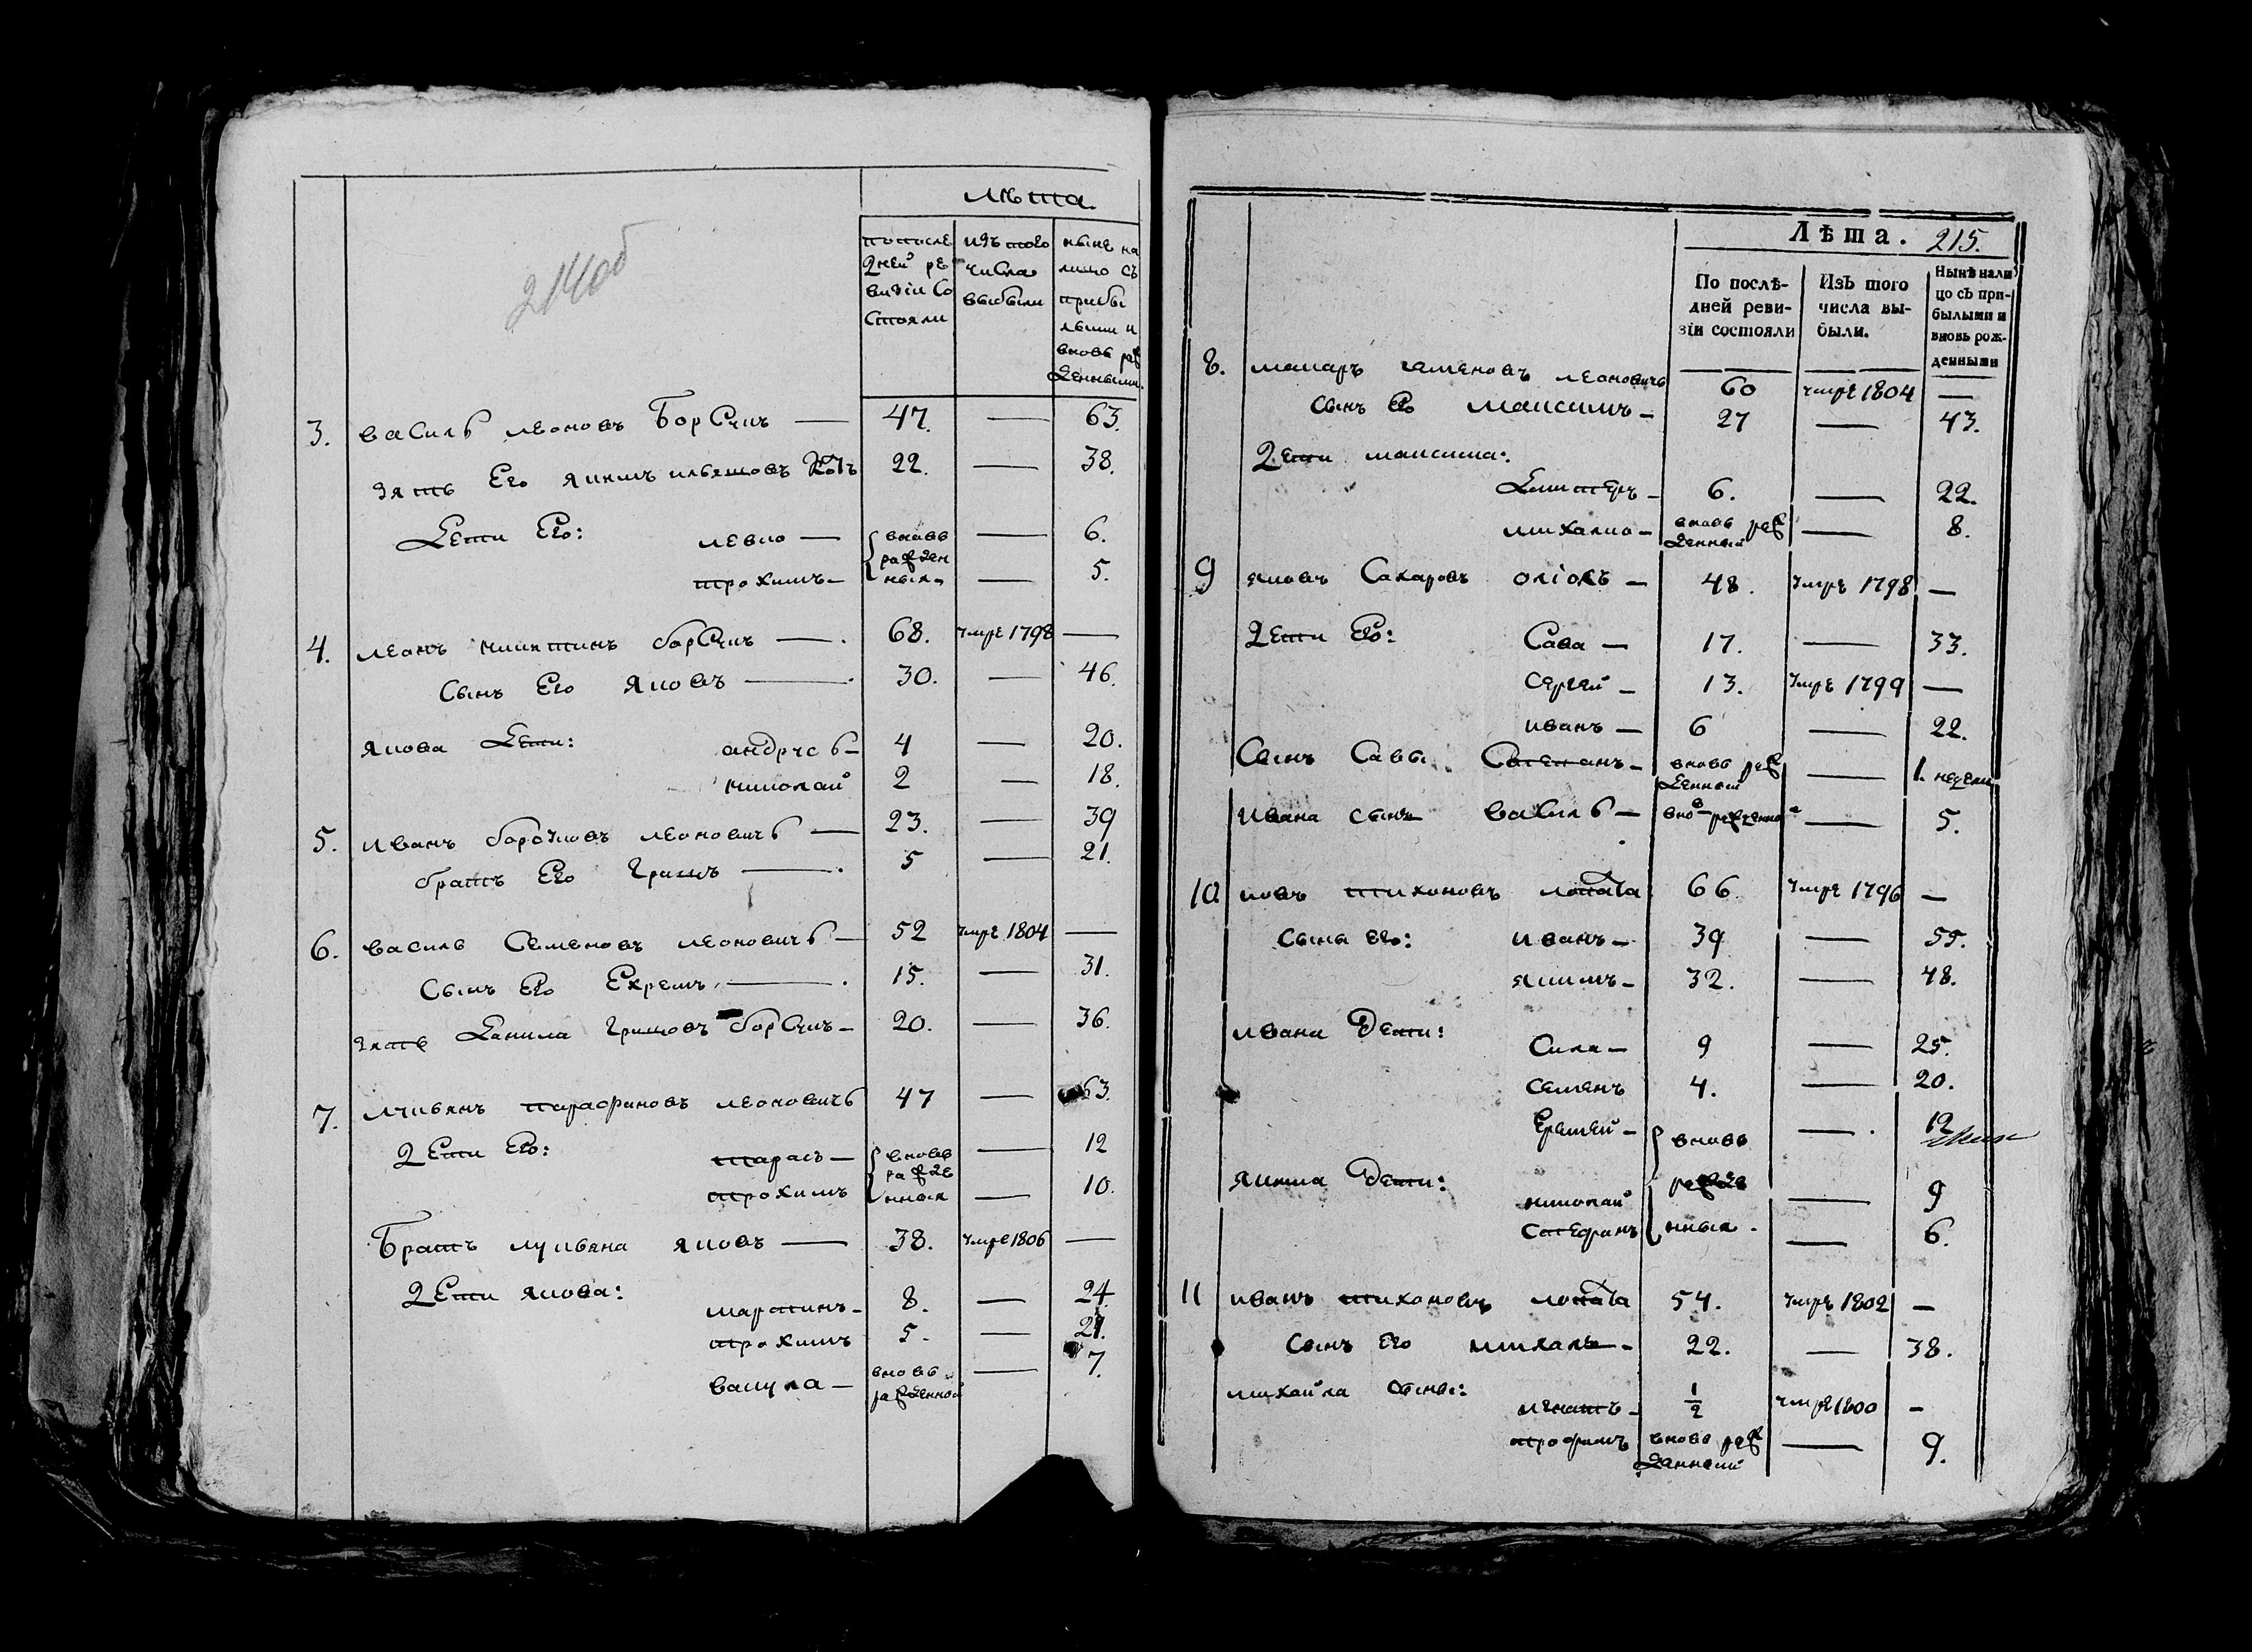 214об
лѣта.
по после
дней ре
визіи Со
стояли
изъ того
числа
выбыли
нынѣ на
лицо съ
прибы
лыми и
вновь рож
денными.
3. василь леоновъ Борсукъ — 47. — 63.
зять Его якимъ ильяшовъ 22. — 38.
Дети Его: левко — вновь — 6.
рожден
трохимъ — ныя — 5.
4. леонъ микитинъ борсукъ — 68. умре 1798 —
Сынъ Его яковъ — 30. — 46.
якова Дети: андрусь — 4 — 20.
николай 2 — 18.
5. иванъ борсуковъ леоновичь — 23. — 39
братъ Его Гришъ — 5 — 21.
6. василь Семеновъ леоновичь — 52 умре 1804 —
Сынъ Его Ехремъ — 15. — 31.
зять Данила Гришовъ борсукъ — 20. — 36.
7. лукьянъ парафиновъ леоновичь 47 — 63.
Дети Его: тарасъ — вновь — 12
рожде
трохимъ нныя — 10.
Братъ лукьяна яковъ — 38. умре 1806 —
Дети якова:
мартинъ — 8. — 24.
трохимъ 5. — 21.
вакула — вновь — 7.
рожденной
Лѣта. 215.
По послѣ-
дней реви-
зіи состояли
Изъ того
числа вы-
были.
Нынѣ нали
цо съ при-
былыми и
вновь рож-
денными
8. макаръ семеновъ леоновичь 60 умре 1804 —
Сынъ Его максимъ — 27 — 43.
Дети максима:
Дмитеръ — 6. — 22.
михалко — вновь рож — 8.
денный
9 яковъ Сахаровъ — 48. умре 1798 —
Дети Его: Сава — 17. — 33.
Сергей — 13. умре 1799 —
иванъ — 6 — 22.
Сынъ Савы Степанъ — вновь рож — 1. недели
денный
ивана сынъ василь — — 5.
10. иовъ тихоновъ лопата 66. умре 1796 —
Сыны его: иванъ — 39 — 55.
якимъ — 32. — 48.
ивана Дети:
Сила — 9 — 25.
Семенъ 4. — 20.
Еремей — вновь — 12
якима Дети: рожде
николай — 9
Стефанъ нныя. — 6.
11 иванъ тихоновъ лопата 54. умре 1802 —
Сынъ Его михалъ — 22. — 38.
михайла сыны:
игнатъ — 1/2 умре 1800 —
трофимъ вновь рож — 9.
данный